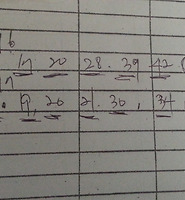 16
17 20 28. 39 42
17
. 19, 20 21. 30, 34